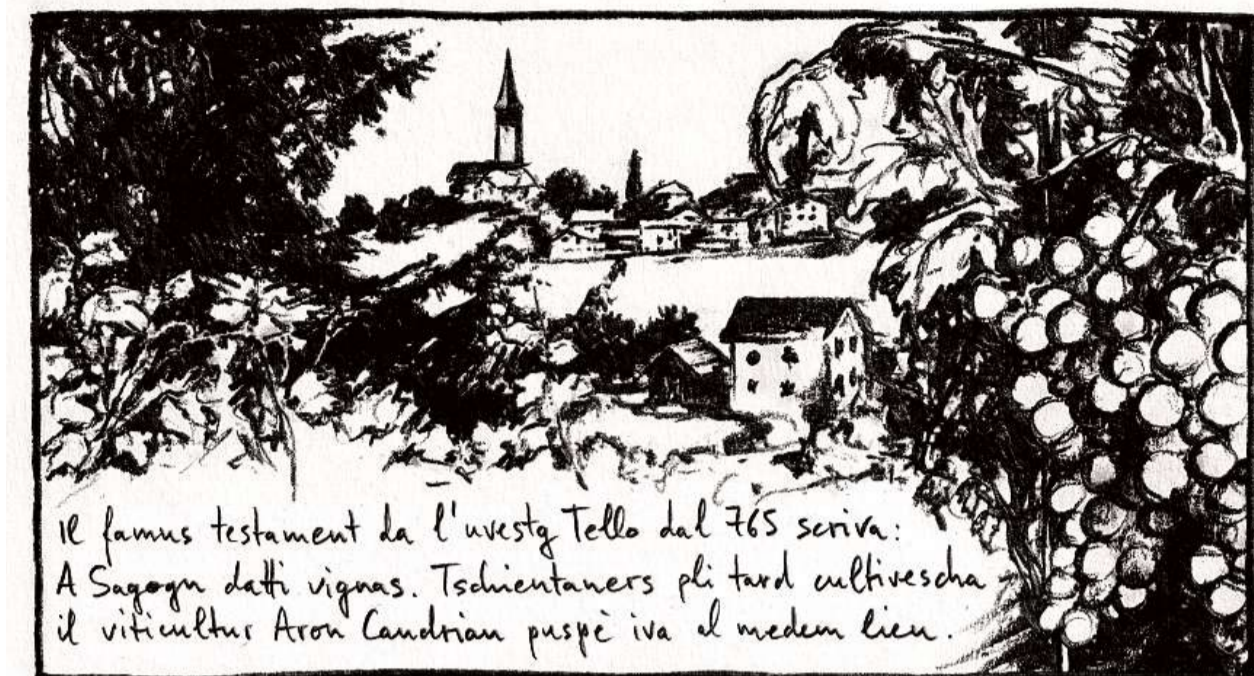 Il famus testament da l'uvestg Tello dal 765 scriva:
A Sagogn datti vignas. Tschientaners pli tard cultivescha
il viticultur Aron Candrian puspè iva al medem lieu.